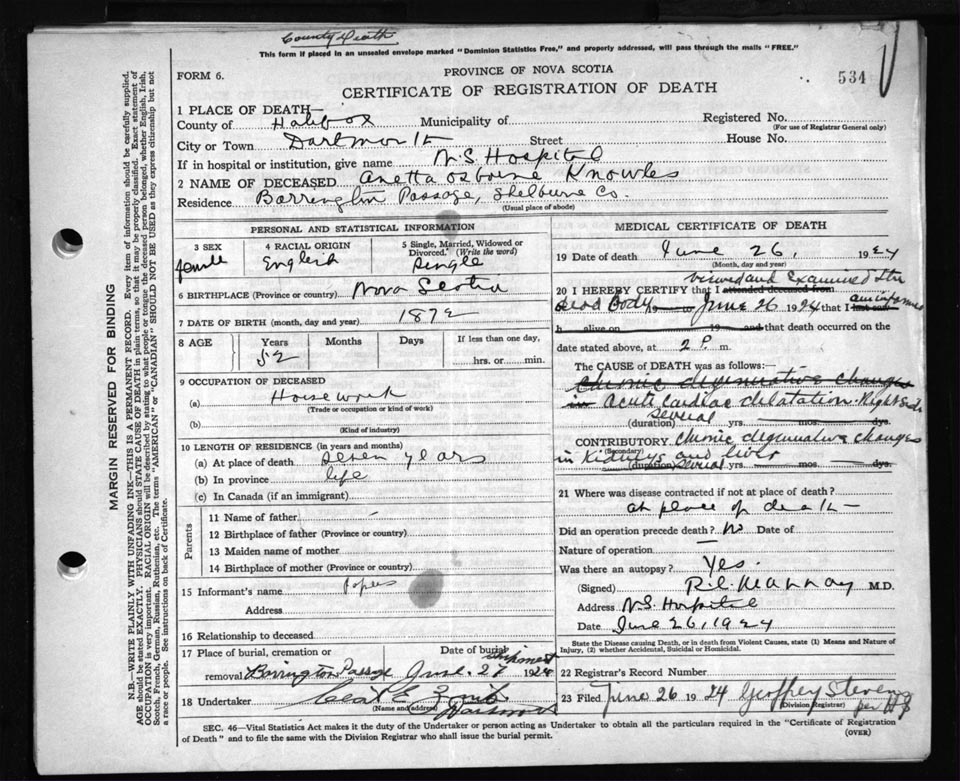 County Death
This form if placed in an unsealed envelope marked "Dominion Statistics Free," and properly addressed, will pass through the mails "FREE."
FORM 6.
PROVINCE OF NOVA SCOTIA
534
CERTIFICATE OF REGISTRATION OF DEATH
1 PLACE OF DEATH—
County of Halifax Municipality of
Registered No.
(For use of Registrar General only)
City or Town Dartmouth Street House No.
If in hospital or institution, give name N.S. Hospital
2 NAME OF DECEASED Anetta Osborne Knowles
Residence Barrington Passage, Shelburne Co.
(Usual place of abode)
PERSONAL AND STATISTICAL INFORMATION
3 SEX
female
4 RACIAL ORIGIN
English
5 Single, Married, Widowed or Divorced. (Write the word)
Single
6 BIRTHPLACE (Province or country) Nova Scotia
7 DATE OF BIRTH (month, day and year) 1872
8 AGE Years Months Days If less than one day,
52 hrs. or min.
9 OCCUPATION OF DECEASED
(a) Housework
(Trade or occupation or kind of work)
(b)
(Kind of industry)
10 LENGTH OF RESIDENCE (in years and months)
(a) At place of death seven years
(b) In province life
(c) In Canada (if an immigrant)
Parents
11 Name of father
12 Birthplace of father (Province or country)
13 Maiden name of mother
14 Birthplace of mother (Province or country)
15 Informant's name Papers
Address
16 Relationship to deceased
17 Place of burial, cremation or Date of burial shipment
removal Barrington Passage June 27 1924
18 Undertaker E. Dartmouth
(Name and address)
MEDICAL CERTIFICATE OF DEATH
19 Date of death June 26, 1924
(Month, day and year)
viewed and Examined the
20 I HEREBY CERTIFY that I attended deceased from
dead Body 19 to June 26 1924 that I last saw am informed
h alive on 19 and that death occurred on
date stated above, at 2 P. m.
The CAUSE of DEATH was as follows:—
Chronic degenerative changes
in Acute Cardiac dilatation. Right side
several
(duration) yrs. mos. dys.
CONTRIBUTORY. Chronic degenerative changes
(Secondary)
in Kidneys and liver
(duration) several yrs. mos. dys.
21 Where was disease contracted if not at place of death?
at place of death —
Did an operation precede death? No Date of
Nature of operation —
Was there an autopsy? Yes.
(Signed) M.D.
Address N.S. Hospital
Date June 26, 1924
State the Disease causing Death, or in death from Violent Causes, state (1) Means and Nature of Injury, (2) whether Accidental, Suicidal or Homicidal.
22 Registrar's Record Number
23 Filed June 26 1924 Geoffrey Stevens
(Division Registrar)
per
SEC. 46—Vital Statistics Act makes it the duty of the Undertaker or person acting as Undertaker to obtain all the particulars required in the "Certificate of Registration
of Death" and to file the same with the Division Registrar who shall issue the burial permit.
(OVER)
MARGIN RESERVED FOR BINDING
N.B.—WRITE PLAINLY WITH UNFADING INK—THIS IS A PERMANENT RECORD. Every item of information should be carefully supplied.
AGE should be stated EXACTLY. PHYSICIANS should STATE CAUSE OF DEATH in plain terms, so that it may be properly classified. Exact statement of
OCCUPATION is very important. RACIAL ORIGIN will be described by stating to what people or tongue the deceased person belonged, whether English, Irish,
Scotch, French, German, Russian, Ruthenian, etc. The terms "AMERICAN" or "CANADIAN" SHOULD NOT BE USED as they express citizenship but not
a race or people. See instructions on back of Certificate.